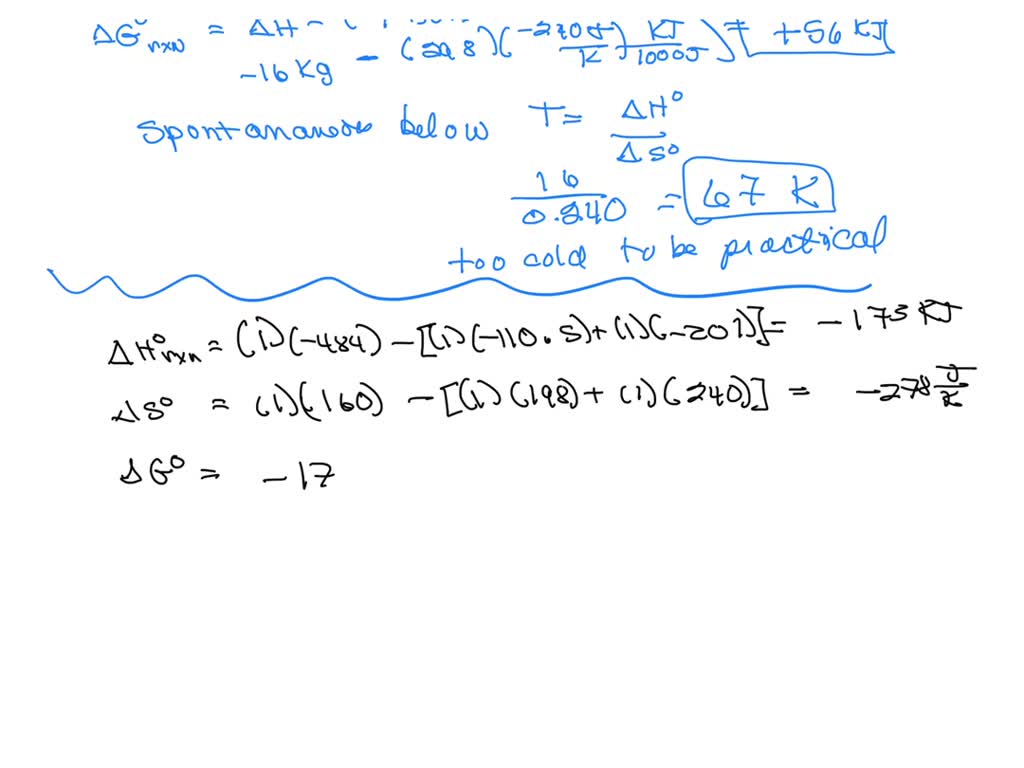 ΔG° rxn = ΔH -
-16 Kg - (298)(-240 J/K)(KJ/1000J) = +56 KJ
spontaneous below T = ΔH°/ΔS°
16/0.240 = 67 K
too cold to be practical
ΔH°rxn = (1)(-484) - [(1)(-110.5) + (1)(-201)] = -173 KJ
ΔS° = (1)(160) - [(1)(198) + (1)(240)] = -278 J/K
ΔG° = -17